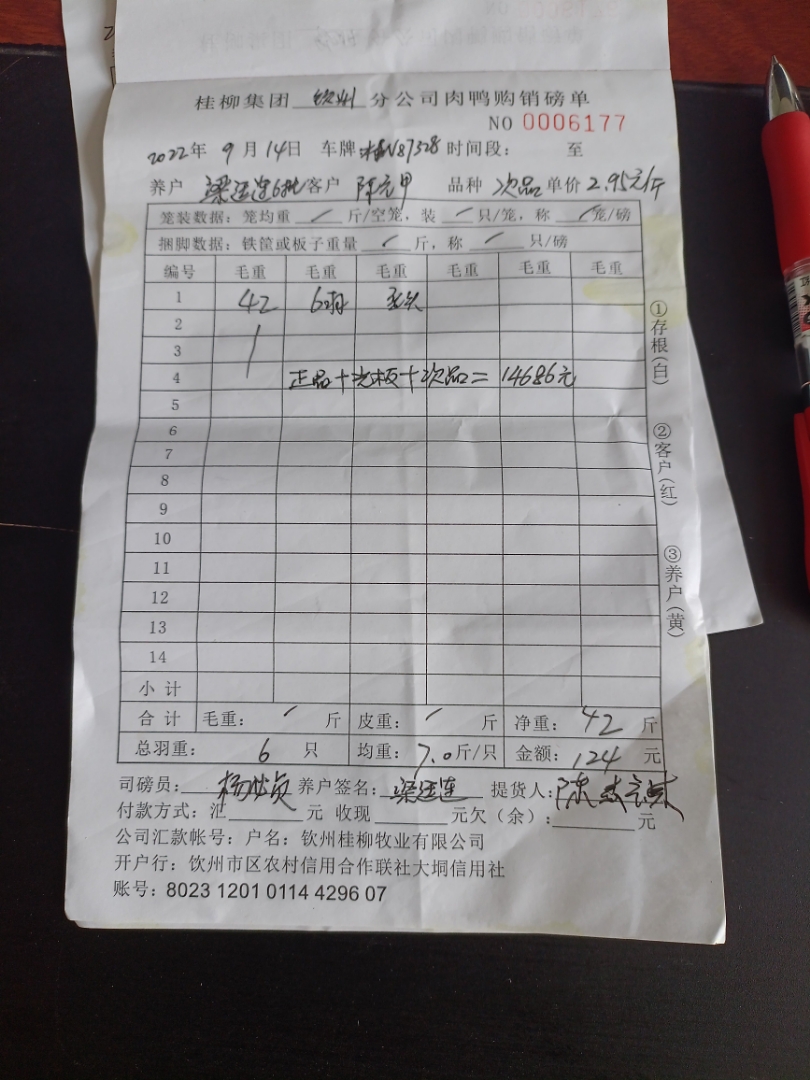 桂柳集团 钦州 分公司肉鸭购销磅单
NO 0006177
2022年 9月 14日 车牌 桂N87328 时间段： 至
养户 梁运连6批 客户 陈元甲 品种 次品 单价 2.95元/斤
笼装数据：笼均重 / 斤/空笼，装 / 只/笼，称 / 笼/磅
捆脚数据：铁筐或板子重量 / 斤，称 / 只/磅
编号 毛重 毛重 毛重 毛重 毛重 毛重
1 42 6羽
2
3
4 正品+光板+次品=14686元
5
6
7
8
9
10
11
12
13
14
小计
合计 毛重： / 斤 皮重： / 斤 净重： 42 斤
总羽重： 6 只 均重： 7.0斤/只 金额： 124 元
司磅员： 养户签名： 梁运连 提货人： 陈
付款方式：汇 元 收现 元欠（余）： 元
公司汇款帐号：户名：钦州桂柳牧业有限公司
开户行：钦州市区农村信用合作联社大垌信用社
账号：8023 1201 0114 4296 07
①存根（白）
②客户（红）
③养户（黄）